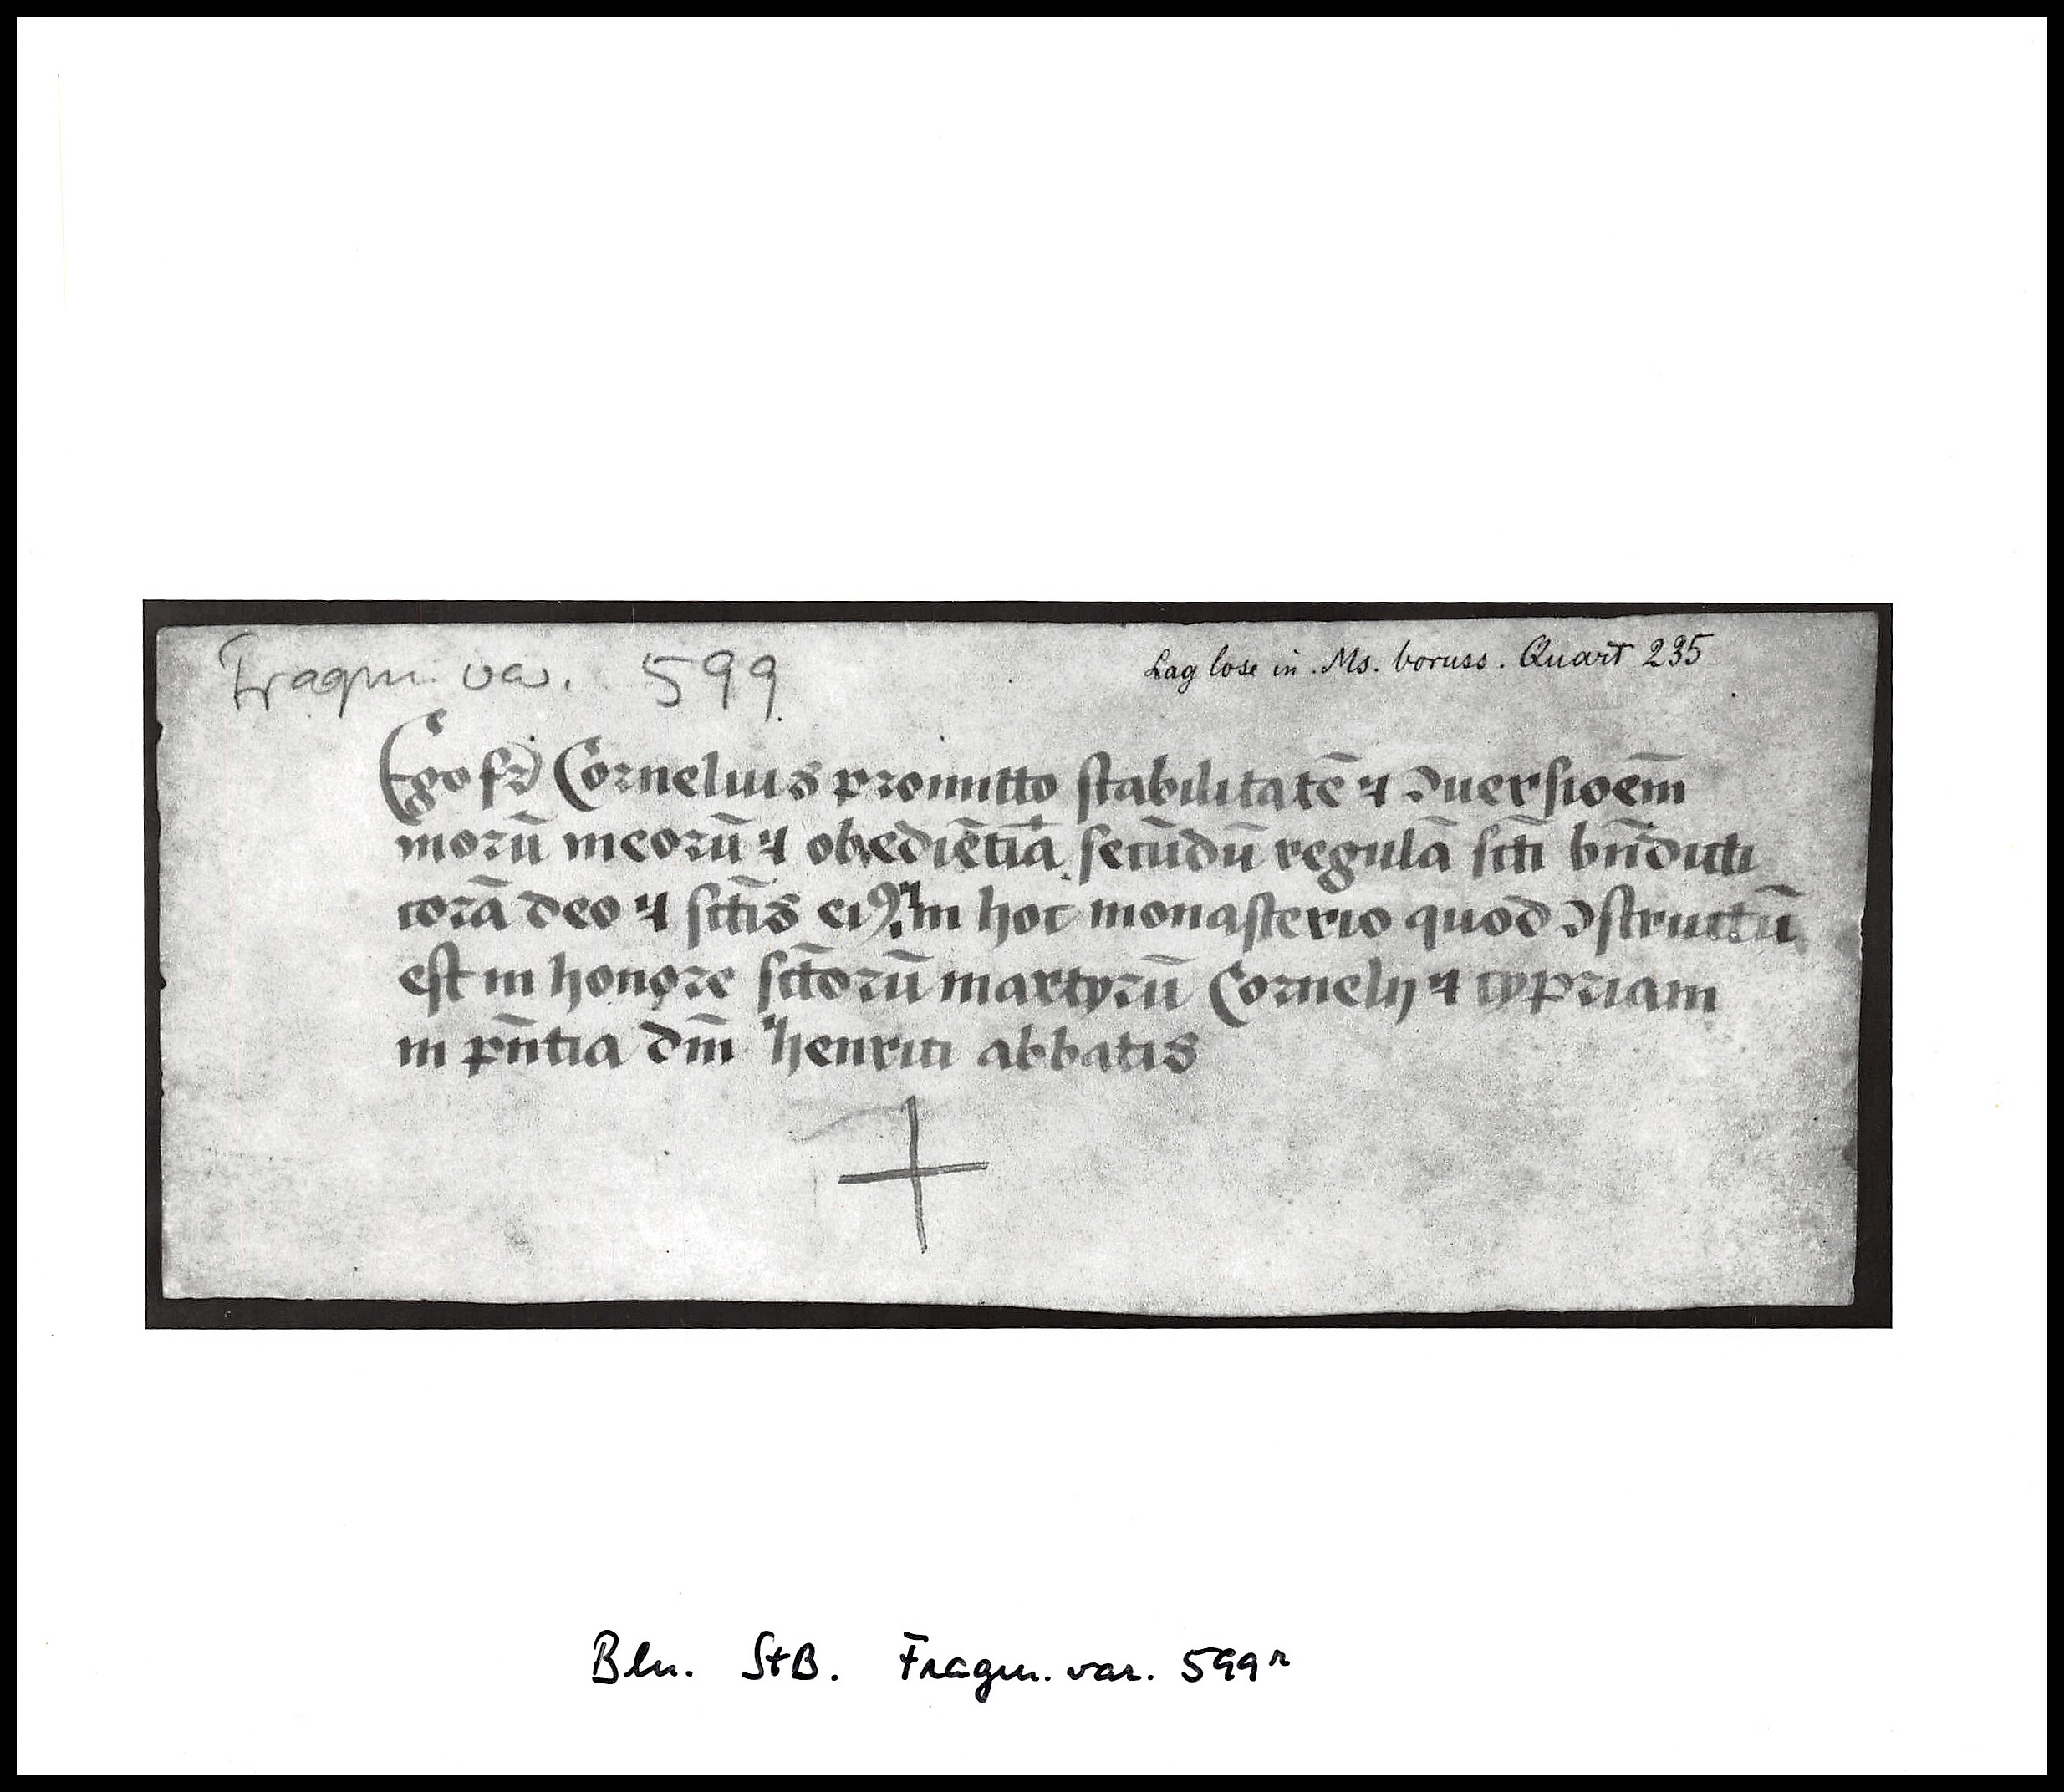 Fragm. var. 599
Lag lose in Ms. boruss. Quart 235
Ego fr̄ Cornelius promitto stabilitatē ⁊ ↄuersioēm
morū meorū ⁊ obediētiā secūdū regulā scti bn̄dicti
corā deo ⁊ sctīs eiꝰ in hoc monasterio quod ↄstructū
est in honore sctōrū martyrū Cornelij ⁊ cypriani
in pn̄tia dn̄i henrici abbatis
Bln. StB. Fragm. var. 599ʳ